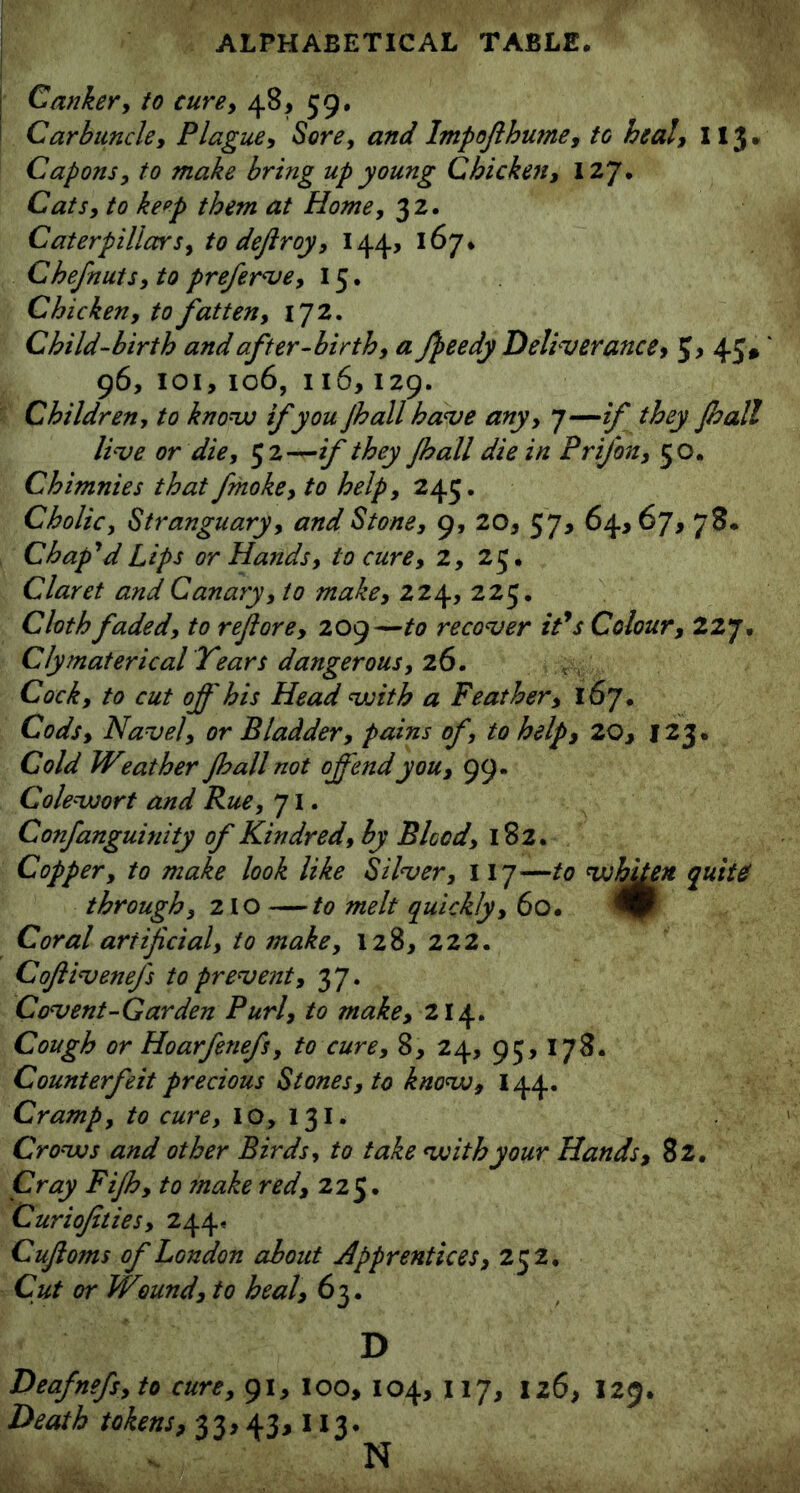 ALPHABETICAL TABLE.
Canker, to cure, 48, 59.
Carbuncle, Plague, Sore, and Impoſthume, to heal, 113.
Capons, to make bring up young Chicken, 127.
Cats, to keep them at Home, 32.
Caterpillars, to deſtroy, 144, 167.
Cheſnuts, to preſerve, 15.
Chicken, to fatten, 172.
Child-birth and after-birth, a ſpeedy Deliverance, 5, 45,
96, 101, 106, 116, 129.
Children, to know if you ſhall have any, 7—if they ſhall
live or die, 52—if they ſhall die in Priſon, 50.
Chimnies that ſmoke, to help, 245.
Cholic, Stranguary, and Stone, 9, 20, 57, 64, 67, 78.
Chap'd Lips or Hands, to cure, 2, 25.
Claret and Canary, to make, 224, 225.
Cloth faded, to reſtore, 209—to recover it's Colour, 227.
Clymaterical Years dangerous, 26.
Cock, to cut off his Head with a Feather, 167.
Cods, Navel, or Bladder, pains of, to help, 20, 123.
Cold Weather ſhall not offend you, 99.
Colewort and Rue, 71.
Conſanguinity of Kindred, by Blood, 182.
Copper, to make look like Silver, 117—to whiten quite
through, 210—to melt quickly, 60.
Coral artificial, to make, 128, 222.
Coſtiveneſs to prevent, 37.
Covent-Garden Purl, to make, 214.
Cough or Hoarſeneſs, to cure, 8, 24, 95, 178.
Counterfeit precious Stones, to know, 144.
Cramp, to cure, 10, 131.
Crows and other Birds, to take with your Hands, 82.
Cray Fiſh, to make red, 225.
Curioſities, 244.
Cuſtoms of London about Apprentices, 252.
Cut or Wound, to heal, 63.
D
Deafneſs, to cure, 91, 100, 104, 117, 126, 129.
Death tokens, 33, 43, 113.
N